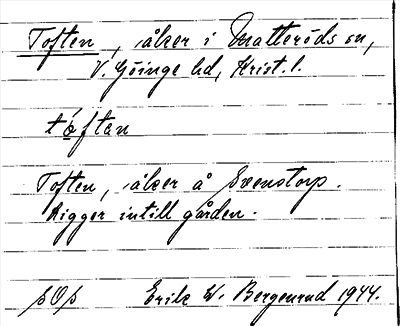 Toften, åker i Matteröds sn,
V. Göinge hd, Krist. l.
tóftan
Toften, åker å Svenstorp.
Ligger intill gården.
pOp Erik W. Bergenrud 1944.